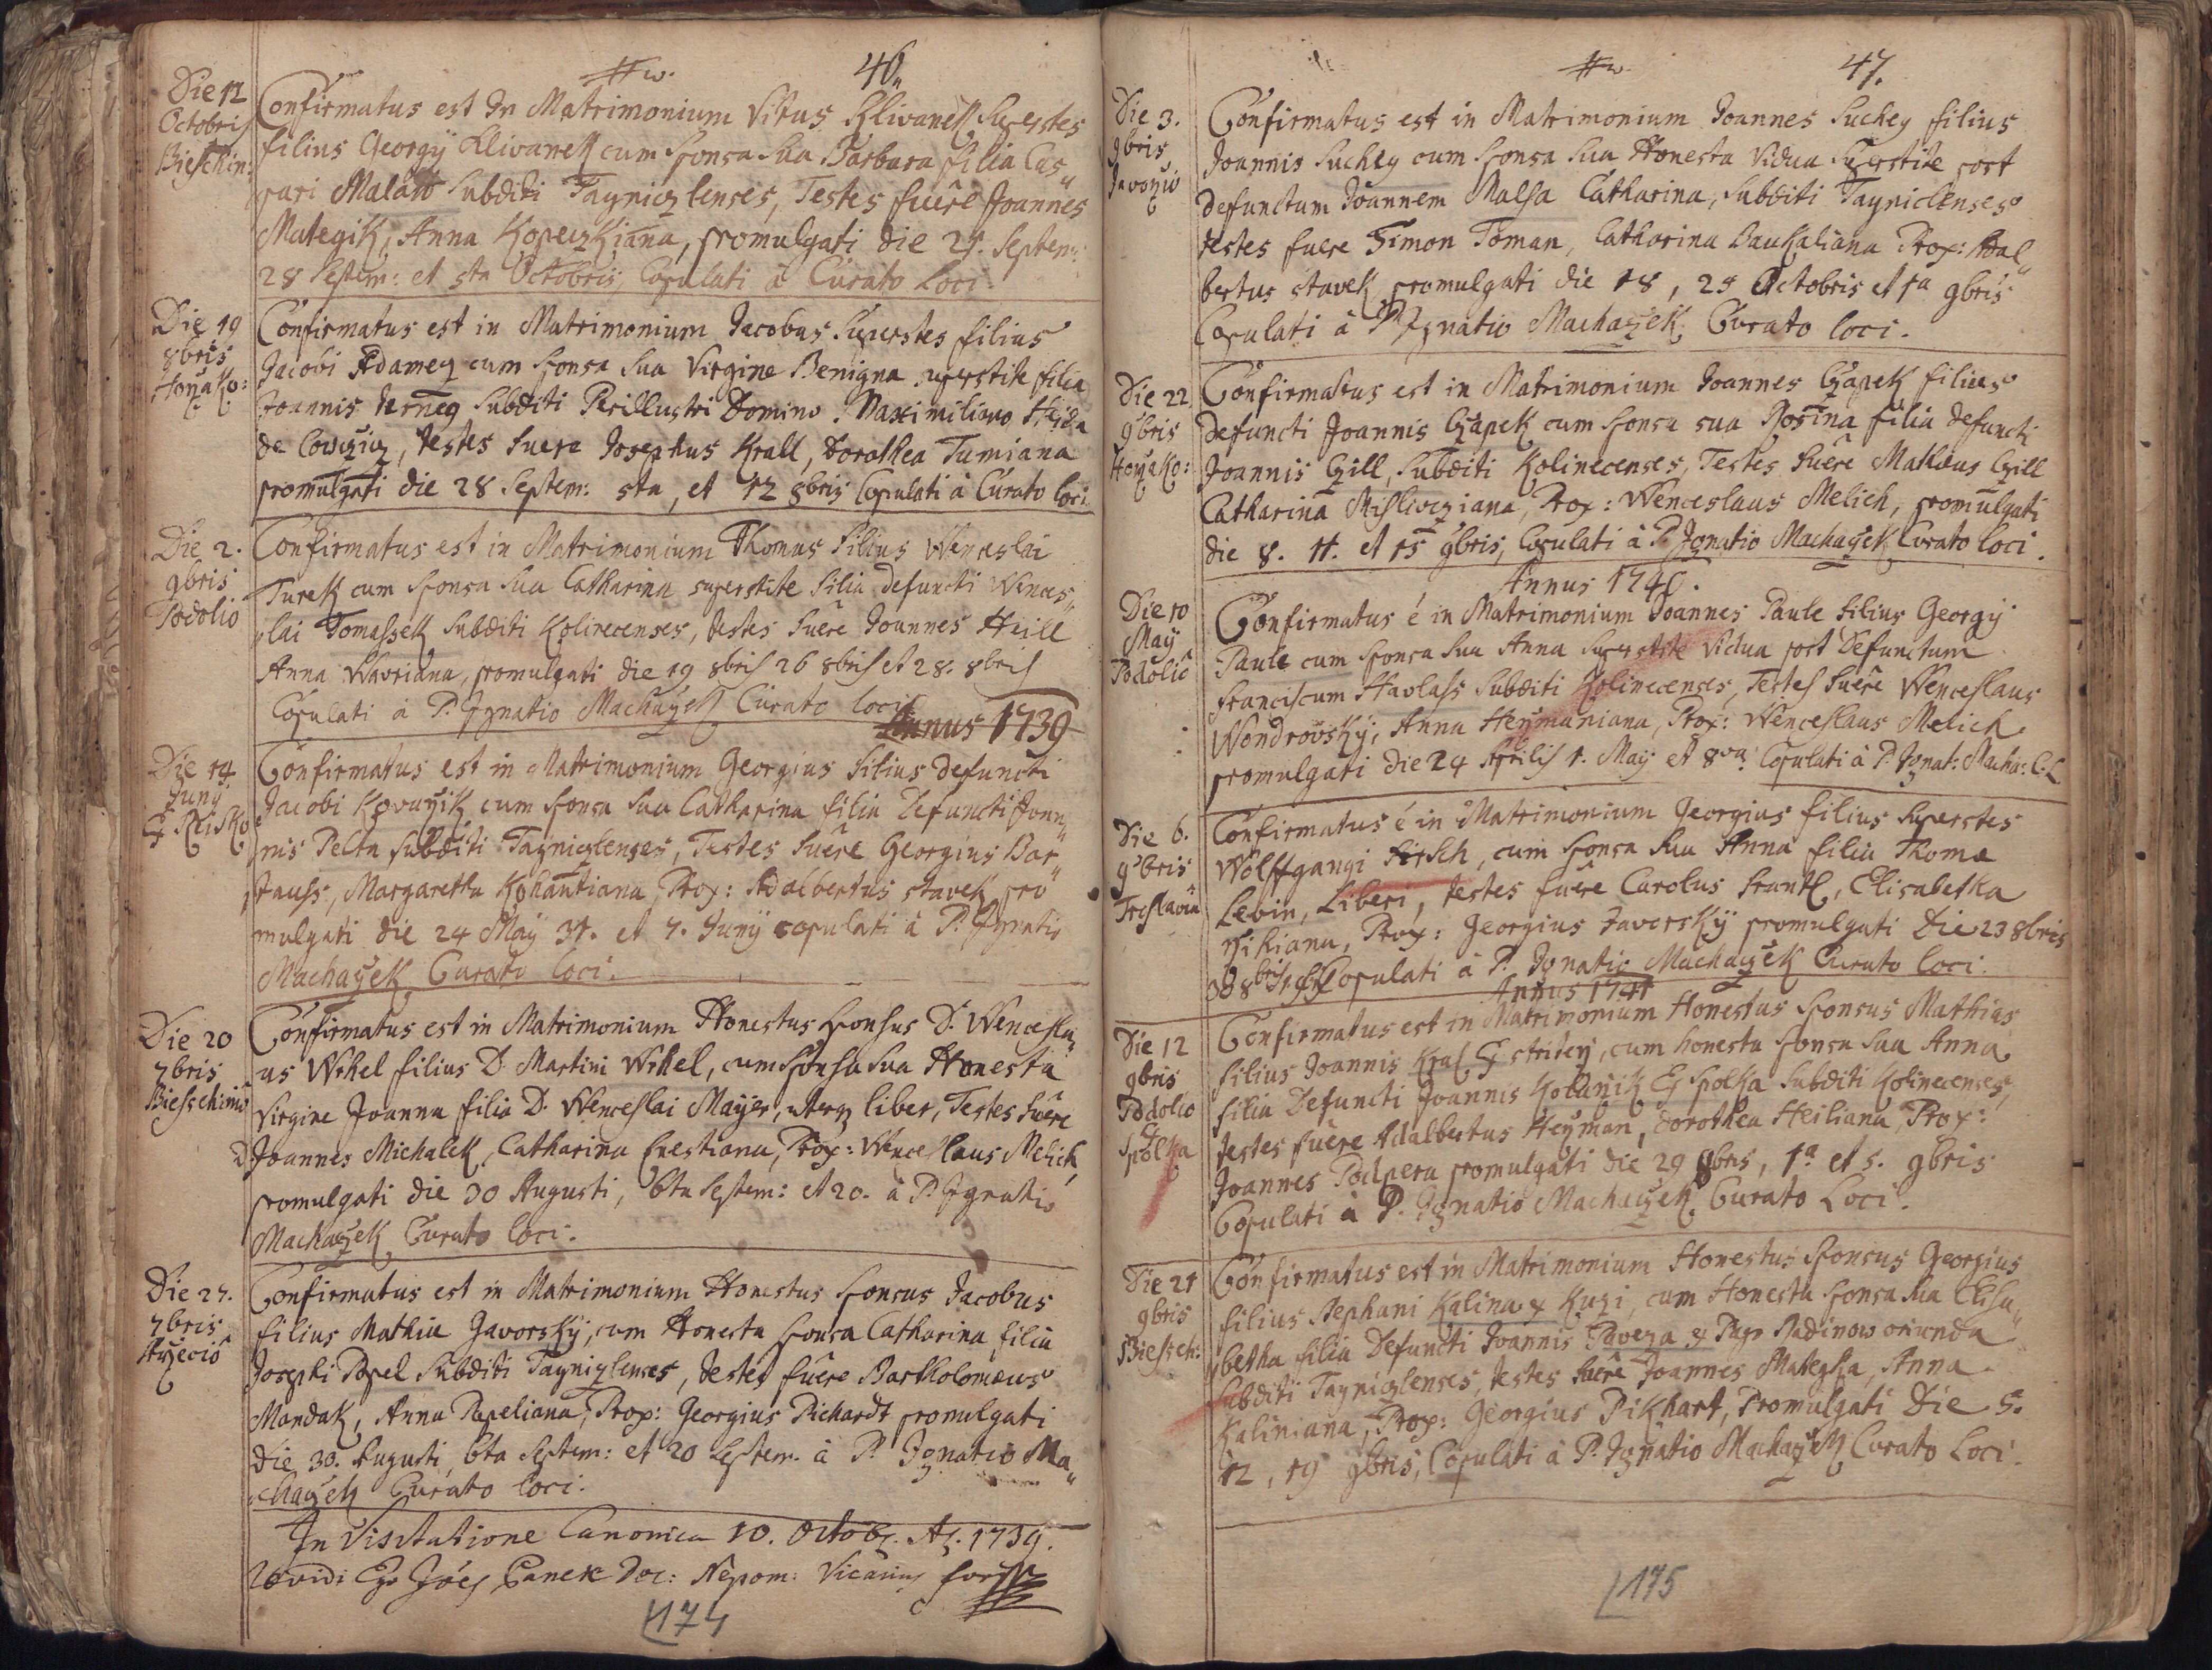 46.
Die 12
Octobris
Bieschin:
Confirmatus est In Matrimonium Vitus Klivanek Superstes
filius Georgÿ Klivanek cum sponsa sua Barbara filia Cas„
pari Malatt subditi Taynicz lenses, Testes fuêre Joannes
Mategik, Anna Kopeczkiana, promulgati die 21. Septem:
28 Septem: et 5ta Octobris, Copulati à Curato Loci.
Die 19
8bris
Confirmatus est in Matrimonium Jacobus Superstes filius
Jacobi Adamecz cum sponsa sua Virgine Benigna superstite filia
Joannis subditi Perillustri Domino Maximiliano
de testes fuere Josephus Krall, Dorothea Tumiana
promulgati die 28 Septem: 5ta, et 12 8bris Copulati à Curato loci
Die 2.
9bris
Podolio
Confirmatus est in Matrimonium Thomas filius Wenceslai
Turek cum sponsa sua Catharina superstite filia defuncti Wences„
„lai Tomassek subditi Kolinecenses, testes fuêre Joannes Heill
Anna Wavriana, promulgati die 19 8bris 26 8bris et 28. 8bris
Copulati à P. Ignatio Machaczek Curato loci
Annus 1739
Die 14.
Juny
Confirmatus est in Matrimonium Georgius filius defuncti
Jacobi Kovarzik cum sponsa sua Catharina filia Defuncti Joan„
nis Pelta subditi Tayniczlenses, Testes fuêre Georgius Bar„
tauss, Margaretha Kohautiana, Prox: Adalbertus stavek pro
mulgati die 24 Maÿ 31. et 7. Junÿ copulati à P. Ignatio
Machaczek Curato loci.
Die 20
7bris
Biesschinio
Confirmatus est in Matrimonium Honestus sponsus D. Wencesla„
us Wrhel filius D. Martini Wrhel, cum sponsa sua Honesta
Virgine Joanna filia D. Wenceslai Mayer, uterq liber, Testes fuêre
D Joannes Michalek, Catharina Ernestiana, Prox: Wenceslaus Melich
promulgati die 30 Augusti, 6ta Septem: et 20. à P. Ignatio
Machaczek Curato loci.
Die 27.
7bris
Confirmatus est in Matrimonium Honestus sponsus Jacobus
filius Mathia Javorsky, cum Honesta sponsa Catharina filia
Josephi Popel subditi Tayniczlenses, testes fuêre Bartholomæus
Mandak, Anna Papeliana, Prox: Georgius Pichardt promulgati
die 30. Augusti, 6ta Septem: et 20 Septem. à P. Ignatio Ma„
chaczek Curato loci.
In Visitatione Canonica 10. Octob. A. 1739.
vidi Ego Nepom: Vicarius
174
47.
Die 3.
9bris
Confirmatus est in Matrimonium Joannes Suchey filius
Joannis Suchey cum sponsa sua Honesta Vidua Superstite post
defunctum Joannem Malsa Catharina, subditi Tayniclenses
testes fuere Simon Toman, Catharina Baukaliana Prox: Adal„
bertus stavek promulgati die 18, 25 Octobris et 1a 9bris
Copulati à P. Ignatio Machaczek Curato loci.
Die 22
9bris
Confirmatus est in Matrimonium Joannes Czapek filius
defuncti Joannis Czapek cum sponsa sua Rosina filia defuncti
Joannis Czill, subditi Kolinecenses, Testes fuêre Mathæus Czill
Catharina Mislivcziana, Prox: Wenceslaus Melich, promulgati
die 8. 11. et 15 9bris, Copulati à P. Ignatio Machaczek Curato loci.
Annus 1740.
Die 10
May
Podolio
Confirmatus é in Matrimonium Joannes Paule filius Georgÿ
Paule cum sponsa sua Anna Superstite Vidua post Defunctum
Franciscum Havlass subditi Kolinecenses, Testes fuêre Wenceslaus
Wondrovsky, Anna Heymaniana, Prox: Wenceslaus Melich
promulgati die 24 Aprilis 1. Maÿ et 8va. Copulati à P. Ignat: Macha: C. L.
Die 6.
9bris
Confirmatus é in Matrimonium Georgius filius Superstes
Wolffgangi Hirsch, cum sponsa sua Anna filia Thomæ
Levin, Liberi, testes fuêre Carolus Frantl, Elisabetha
Wikiana, Prox: Georgius Javorskÿ promulgati Die 23 8bris
30 8bris Copulati à P. Ignatio Machaczek Curato loci.
Annus 1741
Die 12
9bris
Podolio
et
Spolka
Confirmatus est in Matrimonium Honestus sponsus Mathias
filius Joannis Kral Ex stritez, cum honesta sponsa sua Anna
filia Defuncti Joannis Kolarzik Ex Spolka subditi Kolinecenses,
testes fuêre Adalbertus Heyman, Dorothea Heiliana, Prox:
Joannes Podpera promulgati die 29 8bris, 1a et 5. 9bris
Copulati à P. Ignatio Machaczek Curato Loci.
Die 21
9bris
Biessch:
Confirmatus est in Matrimonium Honestus sponsus Georgius
filius Stephani Kalina ex Kuzi, cum Honesta sponsa sua Elisa„
betha filia Defuncti Joannis Paveza ex Pago Radinow oriunda
subditi Tayniczlenses, testes fuêre Joannes Mategka, Anna
Kaliniana, Prox: Georgius Pikhart, Promulgati Die 5.
12, 19 9bris, Copulati à P. Ignatio Machaczek Curato Loci.
175